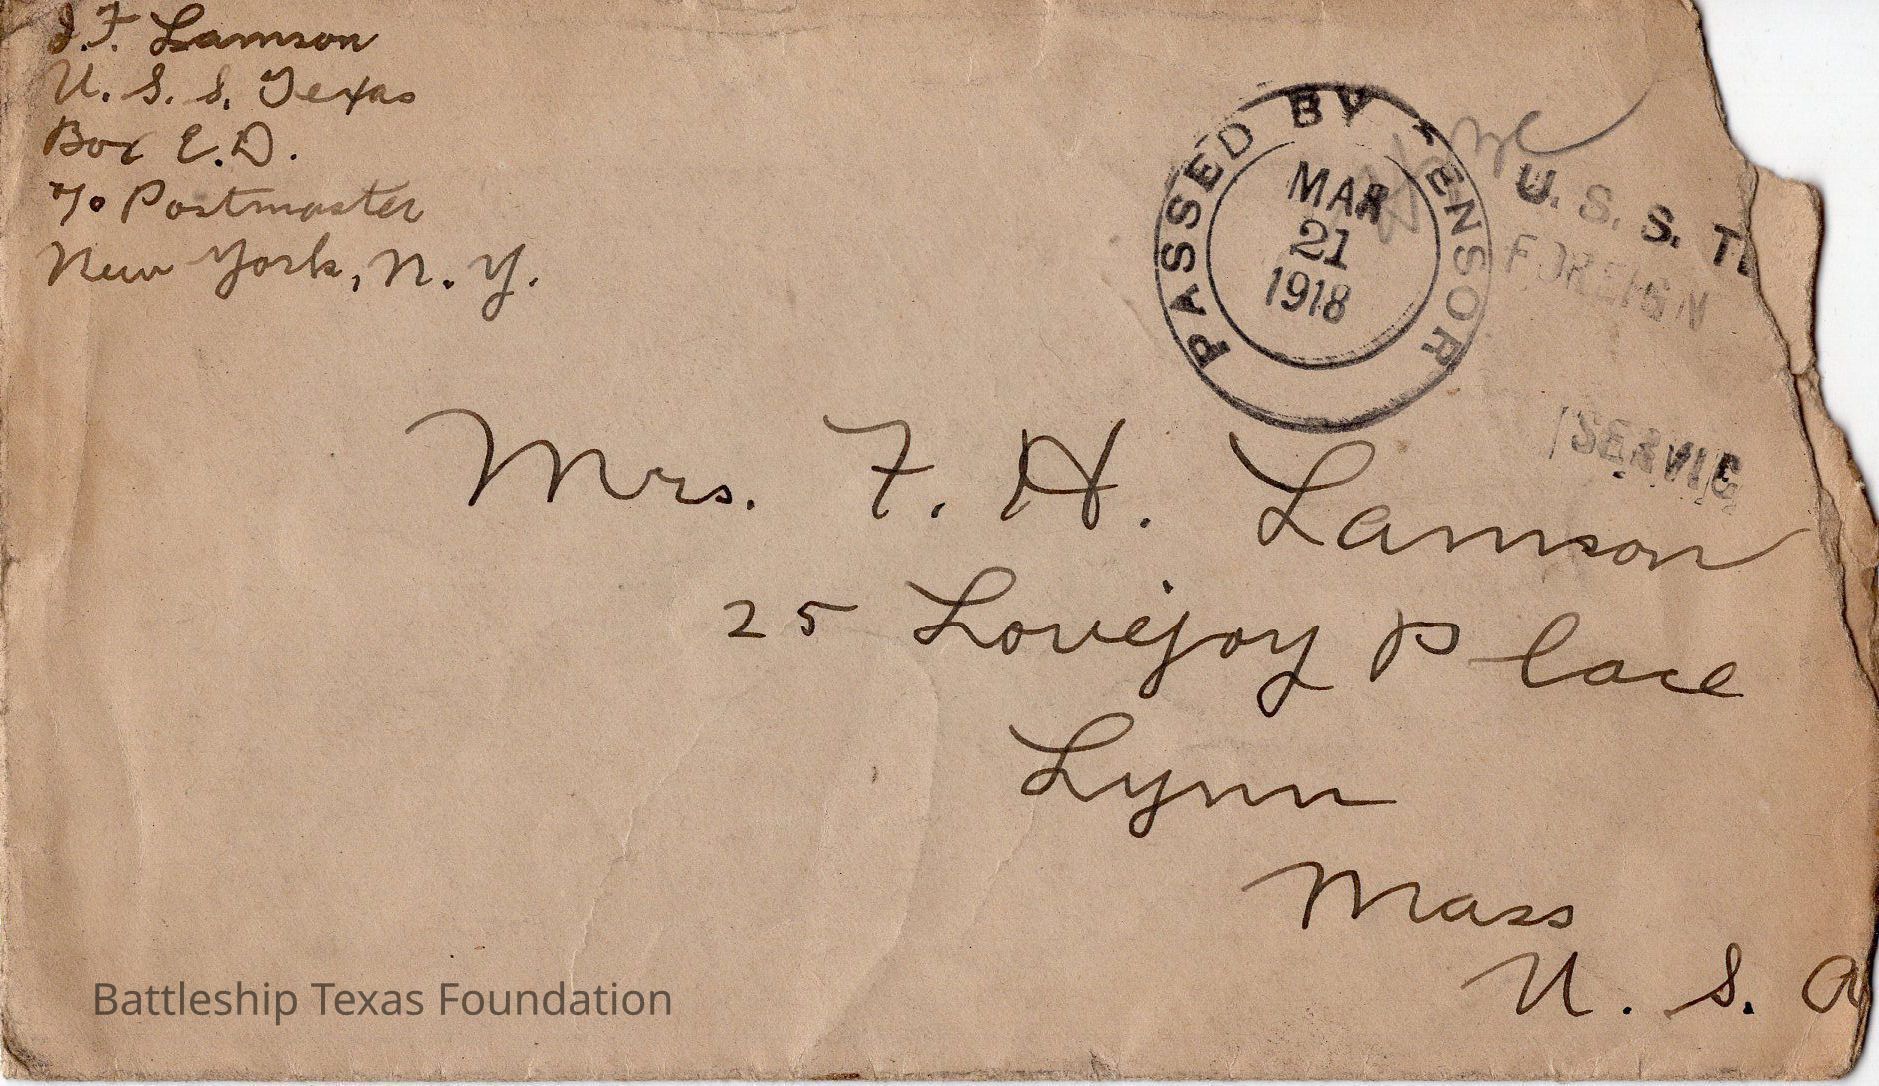 J. F. Lamson
U. S. S. Texas
Box E. D.
c/o Postmaster
New York, N. Y.
PASSED BY CENSOR
MAR
21
1918
U. S. S. TE
FOREIGN
SERVIC
Mrs. F. H. Lamson
25 Lovejoy Place
Lynn
Mass
U. S. A
Battleship Texas Foundation